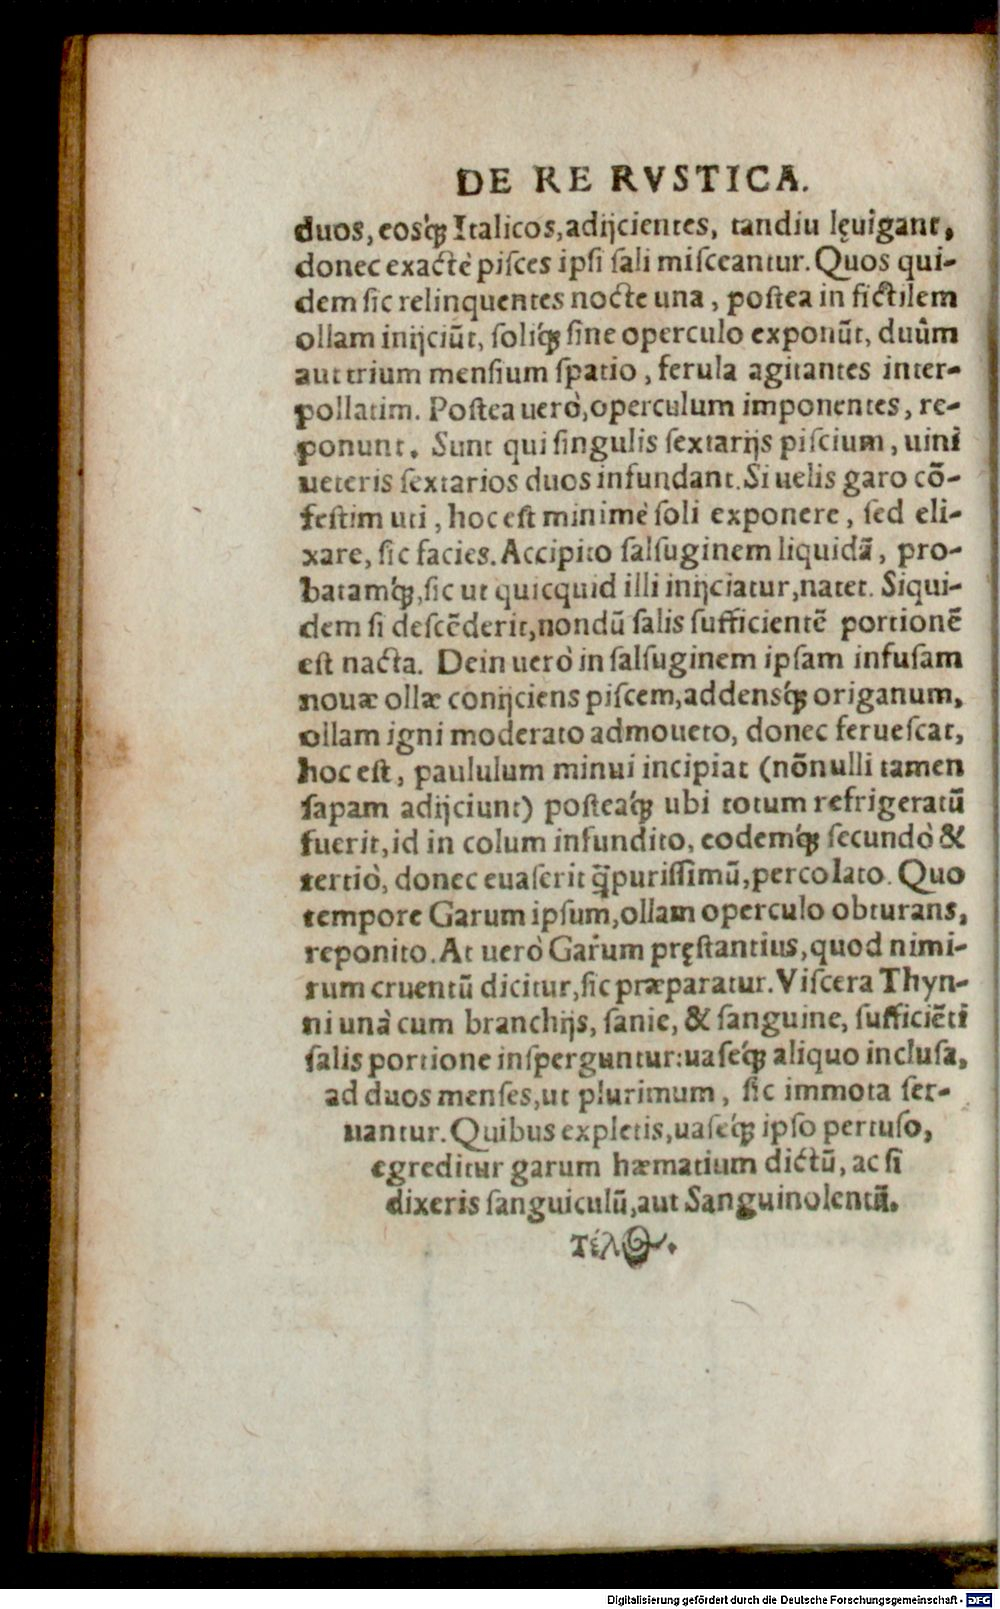 DE RE RVSTICA.
duos, eosq́ꝫ Italicos, adijcientes, tandiu lęuigant,
donec exactè pisces ipsi sali misceantur. Quos qui-
dem sic relinquentes nocte una, postea in fictilem
ollam inijciũt, soliq́ꝫ sine operculo exponũt, duûm
aut trium mensium spatio, ferula agitantes inter-
pollatim. Postea uerò, operculum imponentes, re-
ponunt. Sunt qui singulis sextarijs piscium, uini
ueteris sextarios duos infundant. Si uelis garo cõ-
festim uti, hoc est minimè soli exponere, sed eli-
xare, sic facies. Accipito salsuginem liquidã, pro-
batamq́ꝫ, sic ut quicquid illi inijciatur, natet. Siqui-
dem si descẽderit, nondũ salis sufficientẽ portionẽ
est nacta. Dein uerò in salsuginem ipsam infusam
nouæ ollæ conijciens piscem, addensq́ꝫ origanum,
ollam igni moderato admoueto, donec feruescat,
hoc est, paululum minui incipiat (nõnulli tamen
sapam adijciunt) posteaq́ꝫ ubi totum refrigeratũ
fuerit, id in colum infundito, eodemq́ꝫ secundò &
tertiò, donec euaserit q̃ purissimũ, percolato. Quo
tempore Garum ipsum, ollam operculo obturans,
reponito. At uerò Garum pręstantius, quod nimi-
rum cruentũ dicitur, sic præparatur. Viscera Thyn-
ni unà cum branchijs, sanie, & sanguine, sufficiẽti
salis portione insperguntur: uaseq́ꝫ aliquo inclusa,
ad duos menses, ut plurimum, sic immota ser-
uantur. Quibus expletis, uaseq́ꝫ ipso pertuso,
egreditur garum hæmatium dictũ, ac si
dixeris sanguiculũ, aut Sanguinolentũ.
Τέλος.
Digitalisierung gefördert durch die Deutsche Forschungsgemeinschaft - DFG